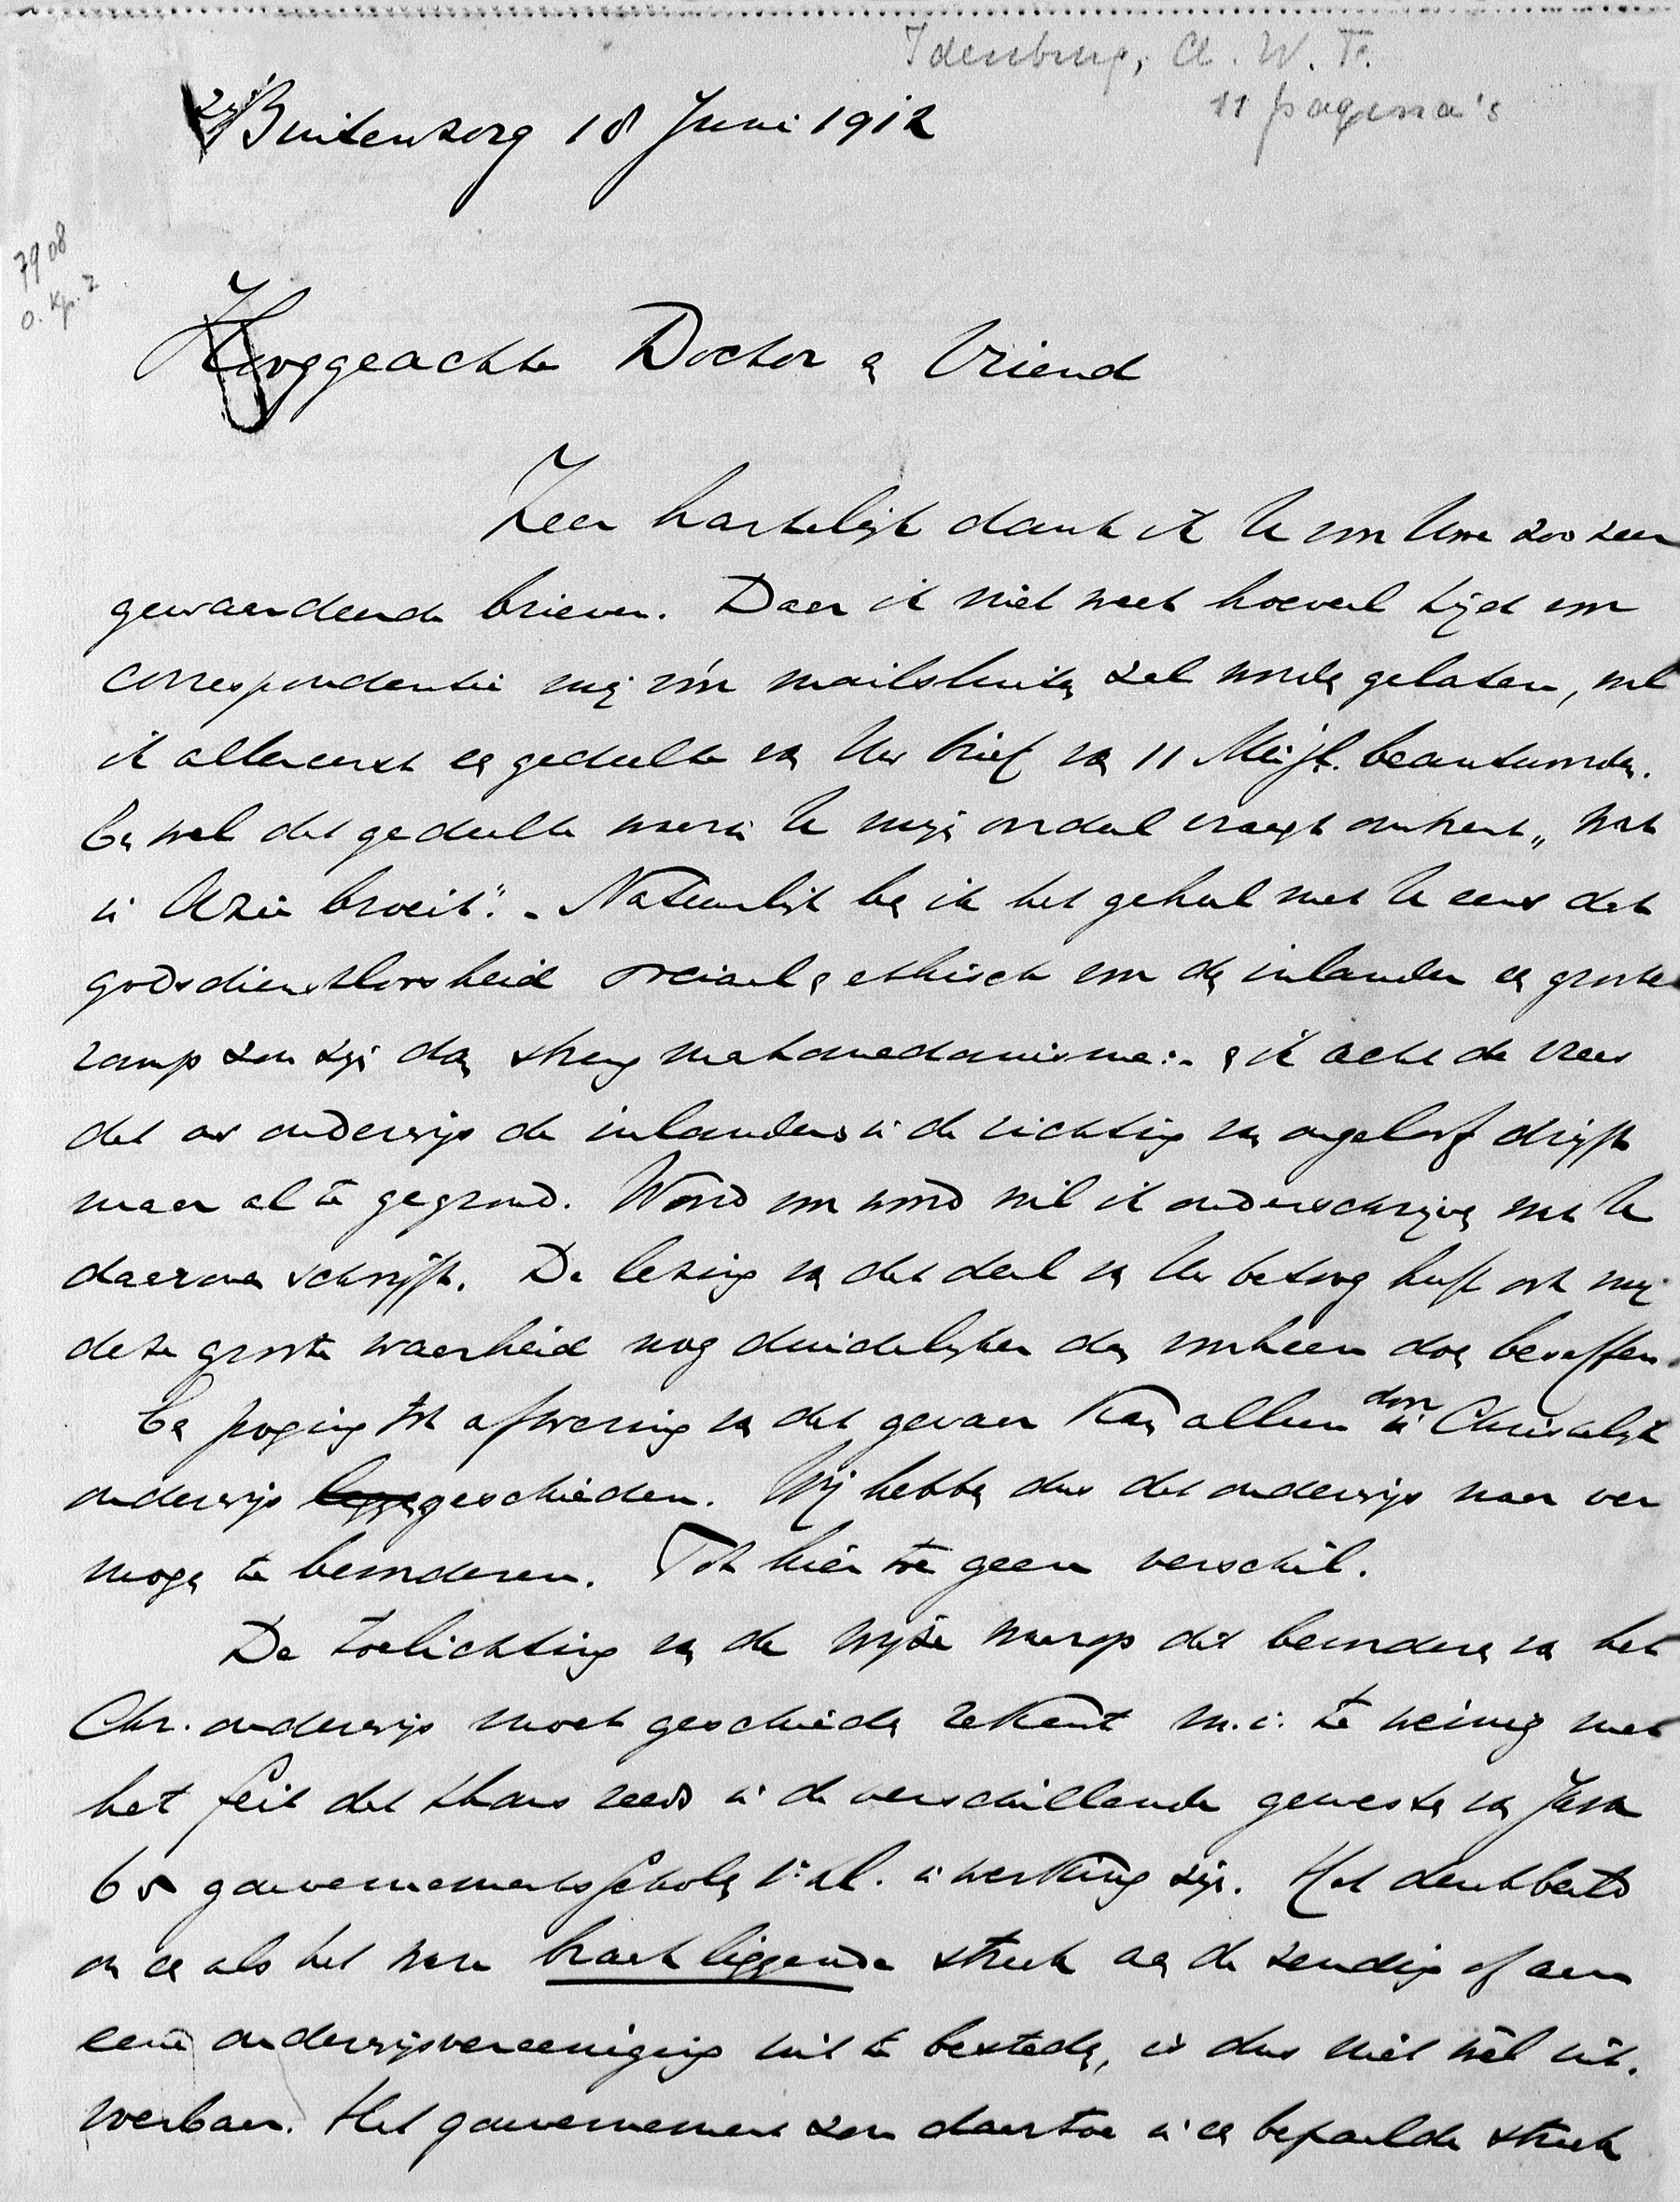 Idenburg, A. W. F.
11 pagina's
Buitenzorg 18 Juni 1912
7908
O. Kp. 2
Hooggeachte Doctor & Vriend
Zeer hartelijk dank ik U voor Uwe zoo zeer
gewaardeerde brieven. Daar ik niet weet hoeveel tijd voor
correspondentie mij vóór mailsluiting zal worden gelaten, wil
ik allereerst een gedeelte van Uw brief van 11 Mei jl. beantwoorden.
En wel dat gedeelte waarin U mijn oordeel vraagt omtrent „wat
in Azië broeit". - Natuurlijk ben ik het geheel met U eens dat
godsdienstloosheid sociaal & ethisch voor den inlander een grooter
ramp zou zijn dan streng mahomedanisme: - & ik acht de vrees
dat ons onderwijs de inlanders in de richting van ongeloof drijft
maar al te gegrond. Woord voor woord wil ik onderschrijven wat U
daarover schrijft. De lezing van dat deel van Uw betoog heeft ook mij
deze groote waarheid nog duidelijker dan voorheen doen beseffen.
En poging tot afwering van dat gevaar kan alleen door in Christelijk
onderwijs geschieden. Wij hebben dus dat onderwijs naar ver
mogen te bevorderen. Tot hier toe geen verschil.
De toelichting van de wijze waarop dit bevorderen van het
Chr. onderwijs moet geschieden rekent m.i. te weinig met
het feit dat thans reeds in de verschillende gewesten van Java
65 gouvernementsscholen 1e kl. in werking zijn. Het denkbeeld
om een als het ware braak liggende streek aan de zending of aan
eene onderwijsvereeniging uit te besteden, is dus niet wèl uit-
voerbaar. Het gouvernement zou daartoe in een bepaalde streek